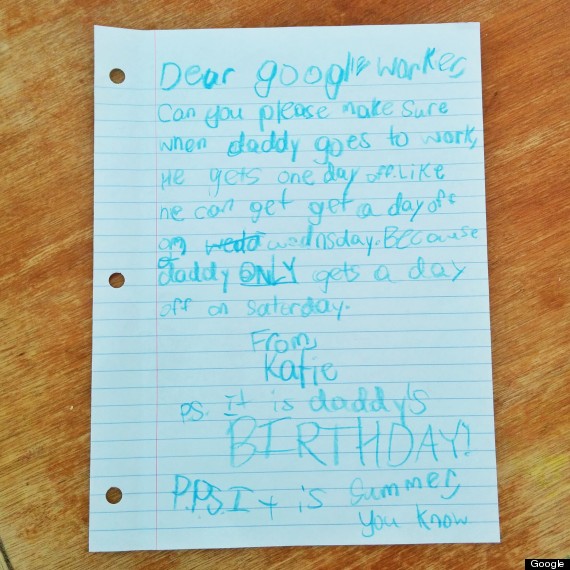 Dear google worker,
Can you please make sure
when daddy goes to work,
He gets one day off. Like
he can get get a day off
on wedo wednsday. Because
daddy ONLY gets a day
off on saturday.
From,
Katie
P.S. It is daddy's
BIRTHDAY!
P.P.S. It is summer,
you know
Google